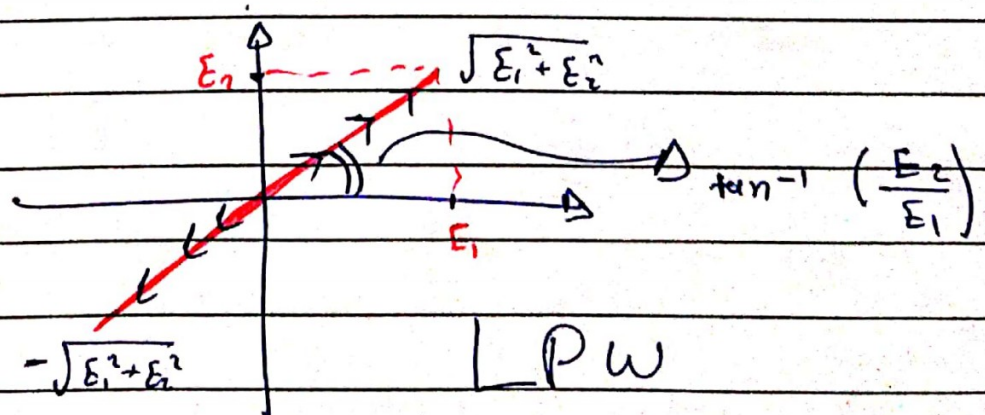 E₂
√E₁² + E₂²
tan⁻¹ (E₂/E₁)
E₁
-√E₁² + E₂²
LPW